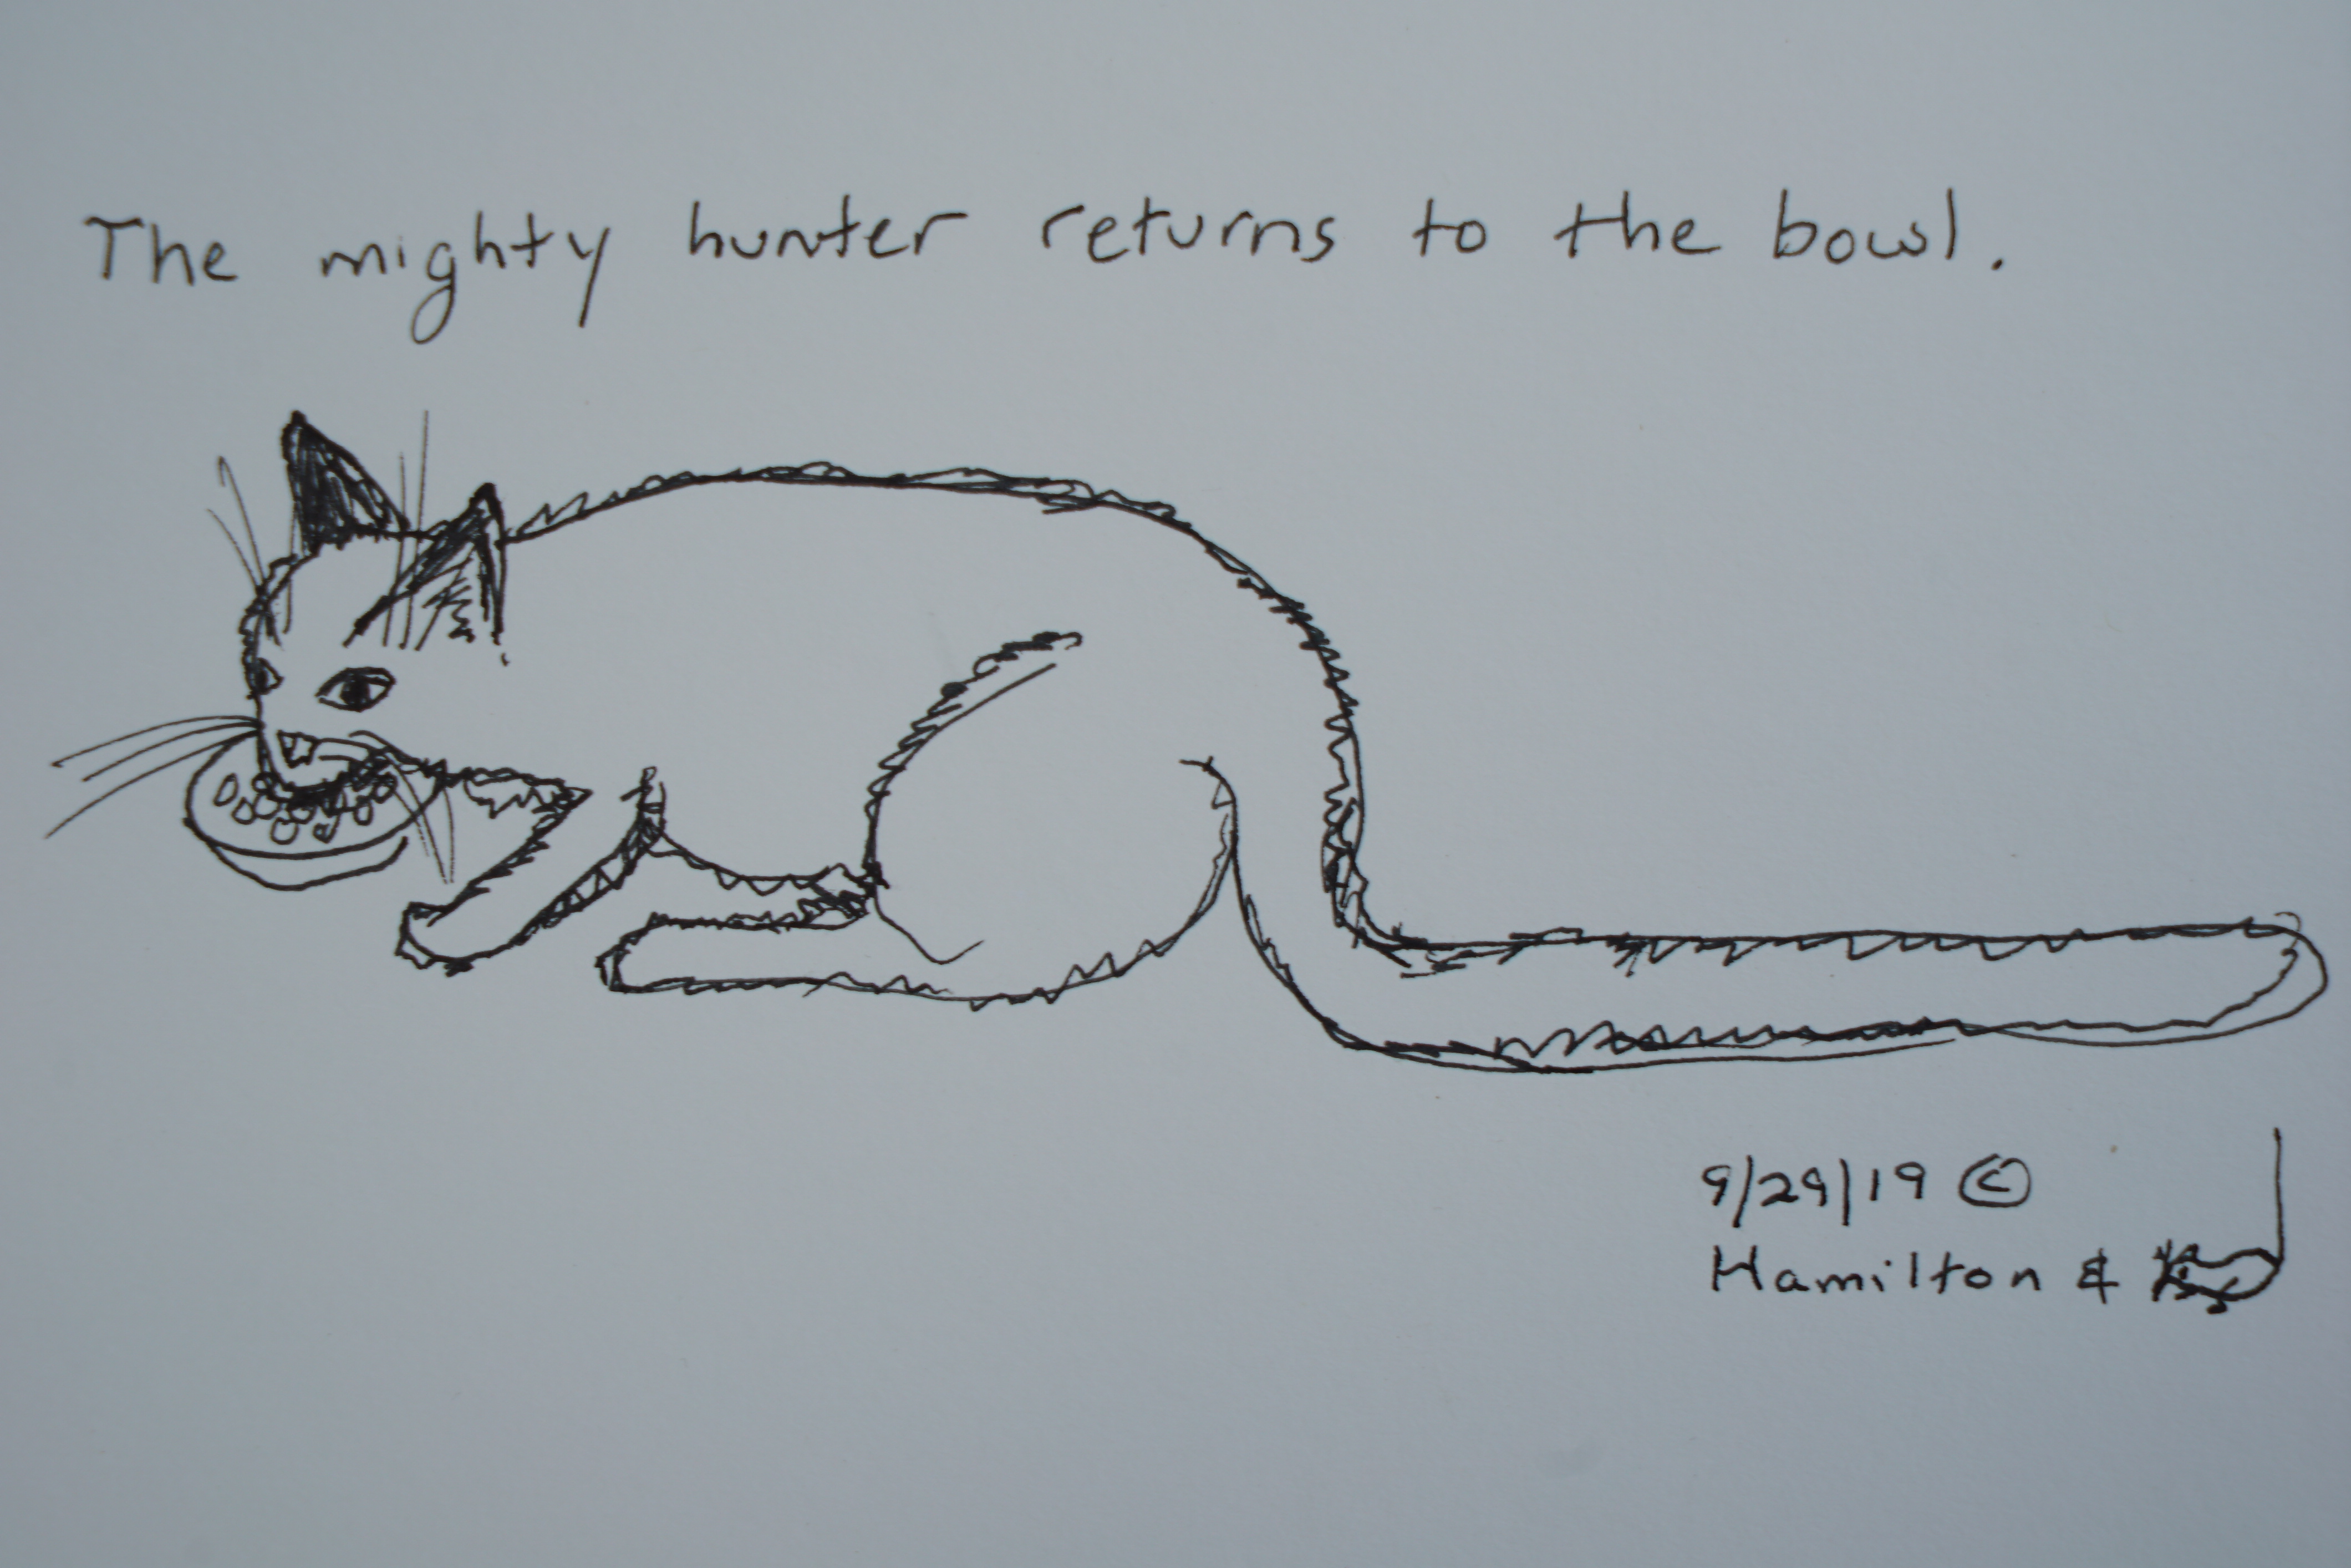 The mighty hunter returns to the bowl.
9/29/19 ©
Hamilton &